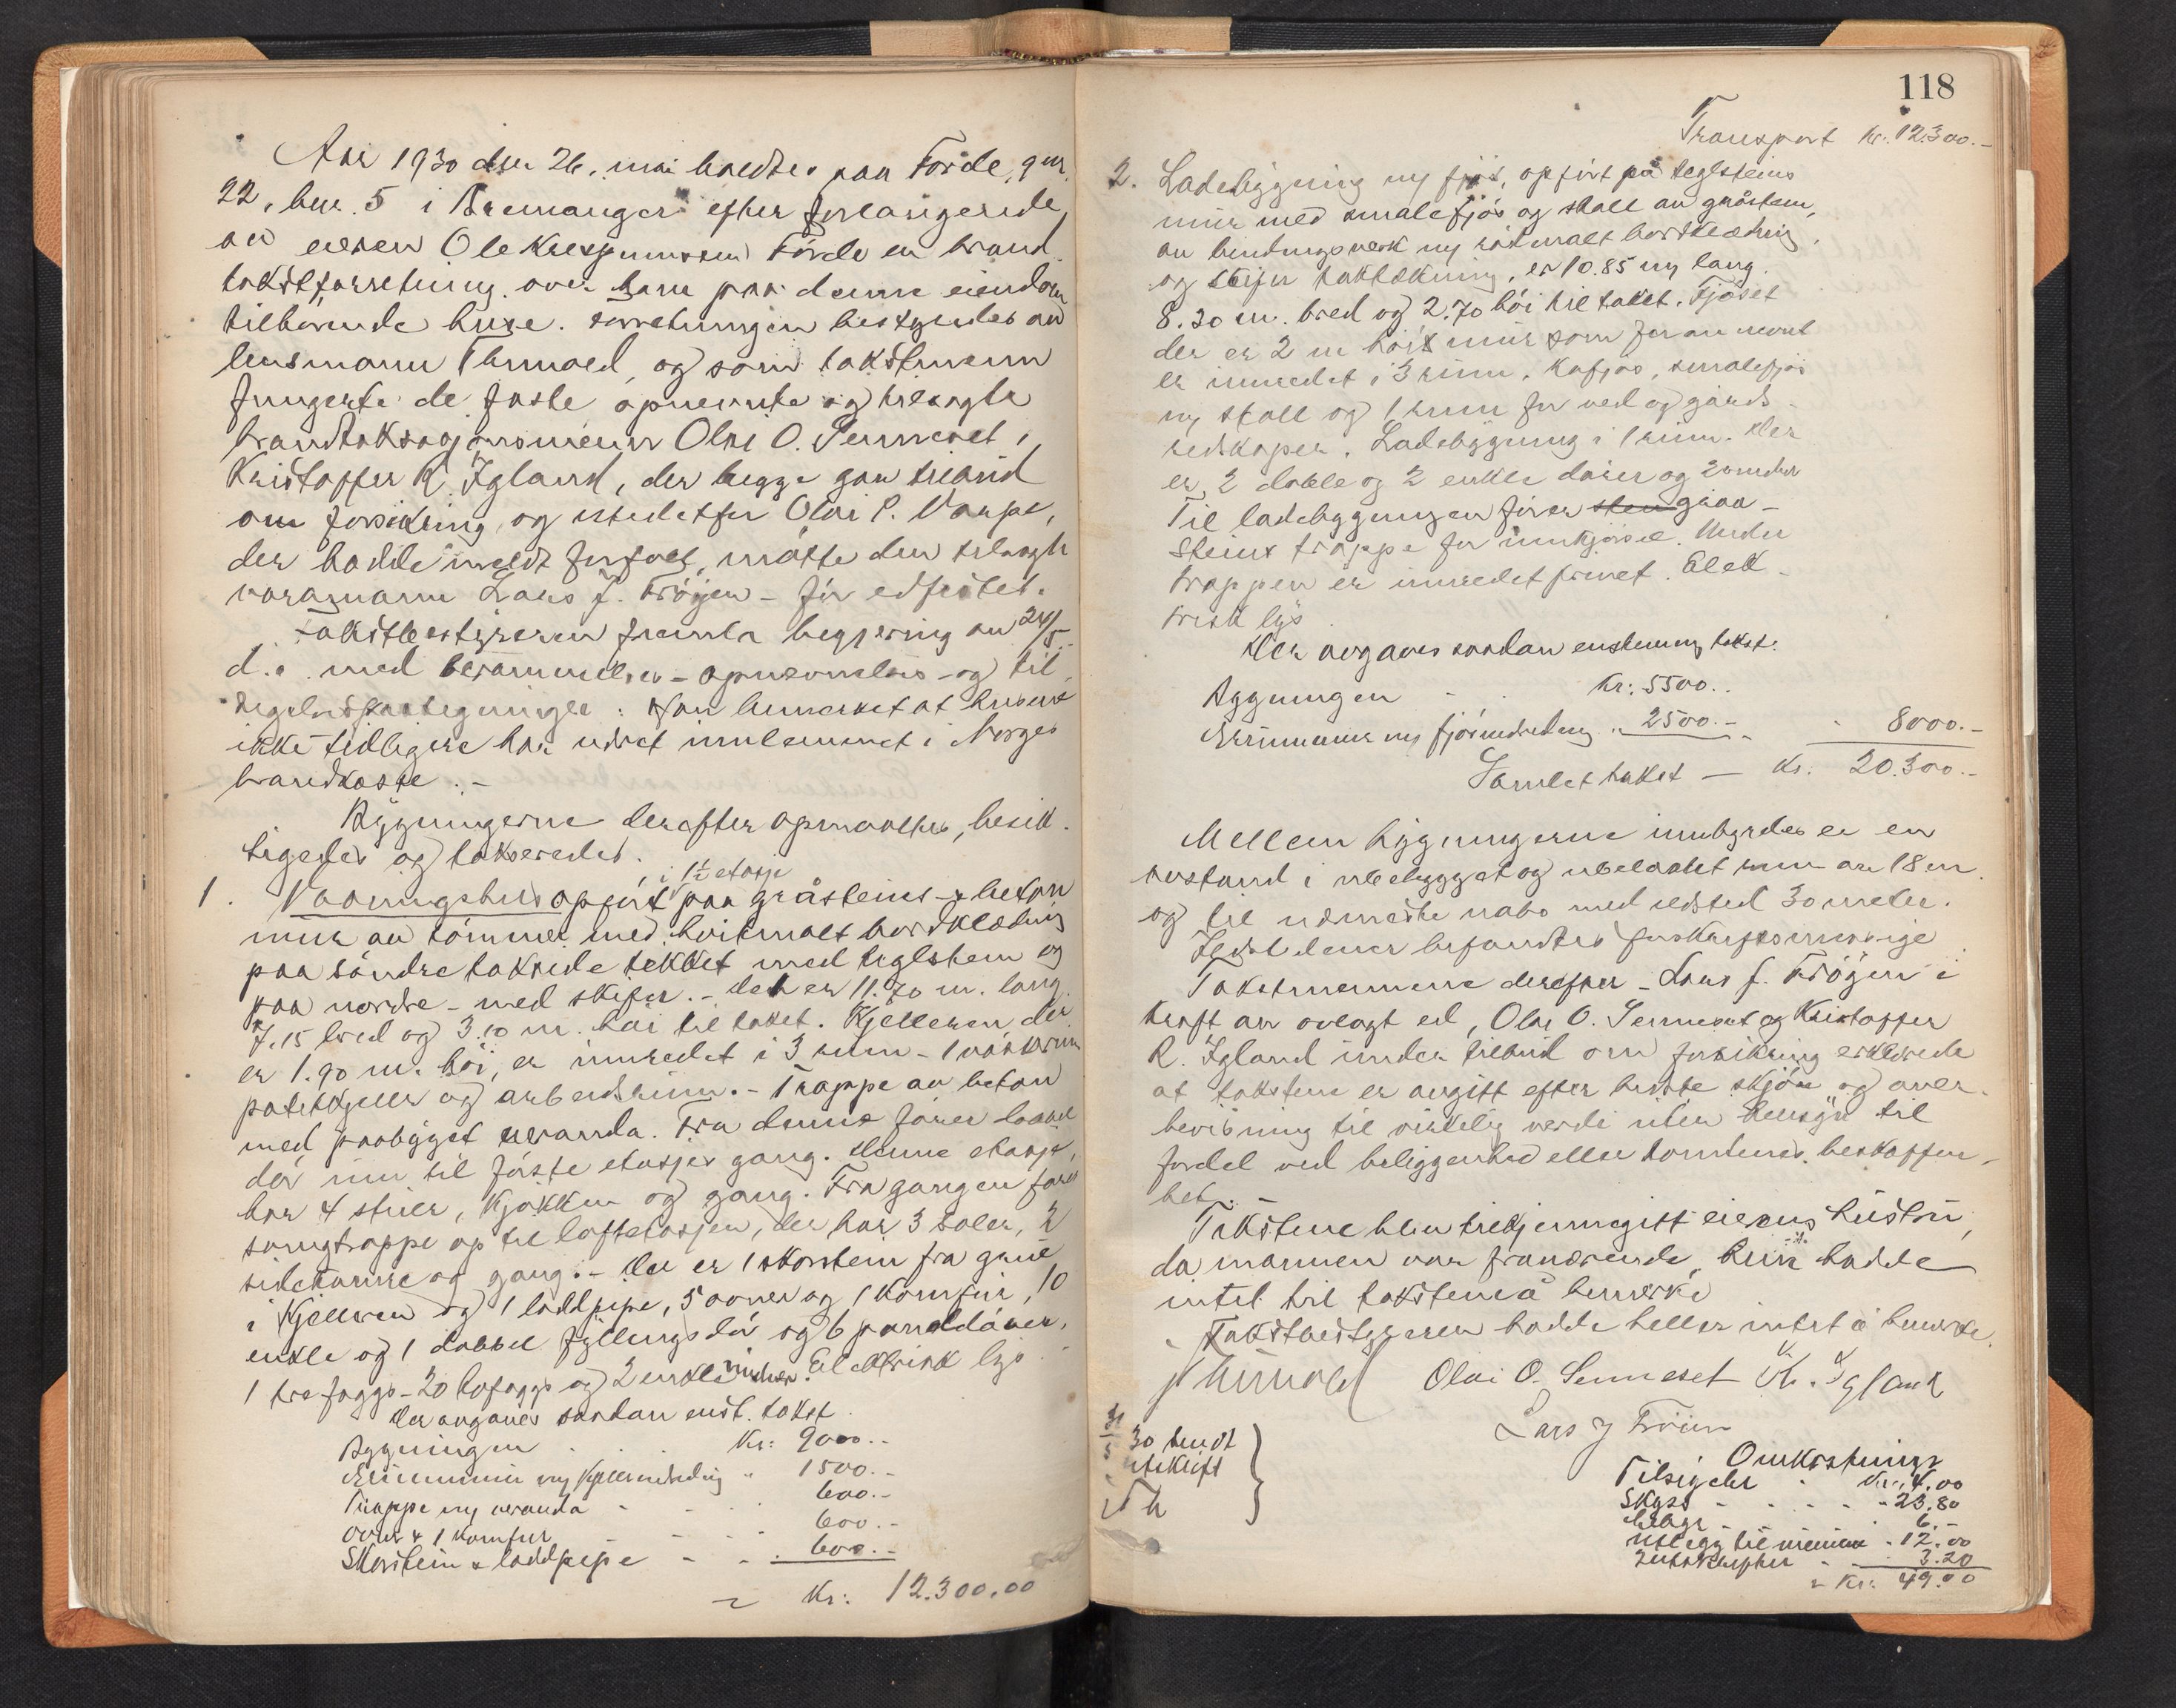 Aar 1930 den 26. mai holdtes paa Förde, gnr.
22, bnr. 5 i Bremanger efter forlangende
av eieren Ole Kristjennssen Förde en brand
takstforretning over ham paa denne eiendom
tilhörende huse. Forretningen bestyredes av
lensmann Thunold, og som takstmenn
fungerte de faste opnevnte og tilsagte
brandtakstmenn Olai O. Senneset,
Kristoffer R. Igland, der begge gav tilbud
om forsikring, og istedetfor Olai P. Vaage,
der hadde meldt forfall, mötte den tilsagte
varamann Lars J. Fröyen - för edfestet.
Takstbestyreren fremla begjering av 24/5
d.a. med berammelses - opnevnelses - og til
sigelsespaategninger. Han bemerket at husene
ikke tidligere har været innlemmet i Norges
brandkasse. -
Bygningerne derefter opmaaltes, besik
tigedes og takseredes.
i 1½ etasje
1. Vaaningshus opfört paa gråsteins - & beton
mur av tömmer med hvitmalt bordklædning
paa söndre takside tekket med teglstein og
paa nordre - med skifer. - Det er 11.70 m. lang
7.15 bred og 3.10 m. höi til taket. Kjelleren der
er 1.90 m. höi, er innredet i 3 rum - 1 vaskerum
potetkjeller og arbeidsrum. - Trappe av beton
med paabygget veranda. Fra denne förer dobbel
dör inn til förste etasjes gang. Denne etasje
har 4 stuer, kjökken og gang. Fra gangen förer
svingtrappe op til loftetasjen, der har 3 saler, 2
sidekamre og gang. - Der er 1 skorstein fra grue
i kjelleren og 1 loddpipe, 5 ovner og 1 komfur, 10
enkle og 1 dobbel fyllingsdör og 6 paneldörer,
1 tre faggs - 20 tofaggs og 2 enkle vinduer. Elektrisk lys.
Der avgaves saadan enst. takst.
Bygningen . . . Kr: 9000.-
Grunnmur og kjellerindredning " 1500.-
Trappe og veranda - - 600.-
Ovner & 1 komfur - - - 600.-
Skorstein & loddpipe - - 600.-
= Kr: 12.300.00
118
Transport Kr. 12.300.-
2. Ladebygning og fjös, opfört på teglsteins
mur med smalefjös og stall av gråstein,
av bindingsverk og rödmalt bordklædning
og skifer taktekning, er 10.85 m lang.
8.30 m. bred og 2.70 höi til taket. Fjöset
der er 2 m höit mur som foran nevnt
er innredet i 3 rum. Kufjös, smalefjös
og stall og 1 rum for ved og gårds-
redskaper. Ladebygning i 1 rum. Der
er 2 doble og 2 enkle dörer og 2 vinduer
Til ladebygningen förer sten graa-
steins trappe for innkjörsel. Under
trappen er innredet privet. Elek-
trisk lys.
Der avgaves saadan enstemmig takst:
Bygningen - - Kr: 5500..
Grunnmur og fjösindredning " 2500.- - 8000.-
Samlet takst — Kr. 20.300.-
Mellem bygningerne innbyrdes er en
avstand i ubebygget og ubelastet rum av 18 m.
og til nærmeste nabo med ildsted 30 meter.
Ildstedener befandtes forskriftsmessige.
Takstmennene derefter - Lars J. Fröyen i
kraft av avlagt ed, Olai O. Senneset og Kristoffer
R. Igland under tilbud om forsikring erklærede
at taksten er avgitt efter bedste skjön og over-
bevisning til virkelig verdi uten hensyn til
fordel ved beliggenhed eller tomtenes beskaffen-
het. -
Takstene blev tilkjennegitt eierens hustru,
da mannen var fraværende, hun hadde
intet til takstene å bemerke
Takstbestyreren hadde heller intet å bemerke.
Thunold Olai O. Senneset Kr. Igland
Lars J Fröien
30 sendt
utskrift
Th
Omkostninger
Tilsigelse - Kr. 4.00
Skyss - - - - - " 23.80
6.-
Utlegg til mennene - 12.00
3.20
= Kr: 49.00